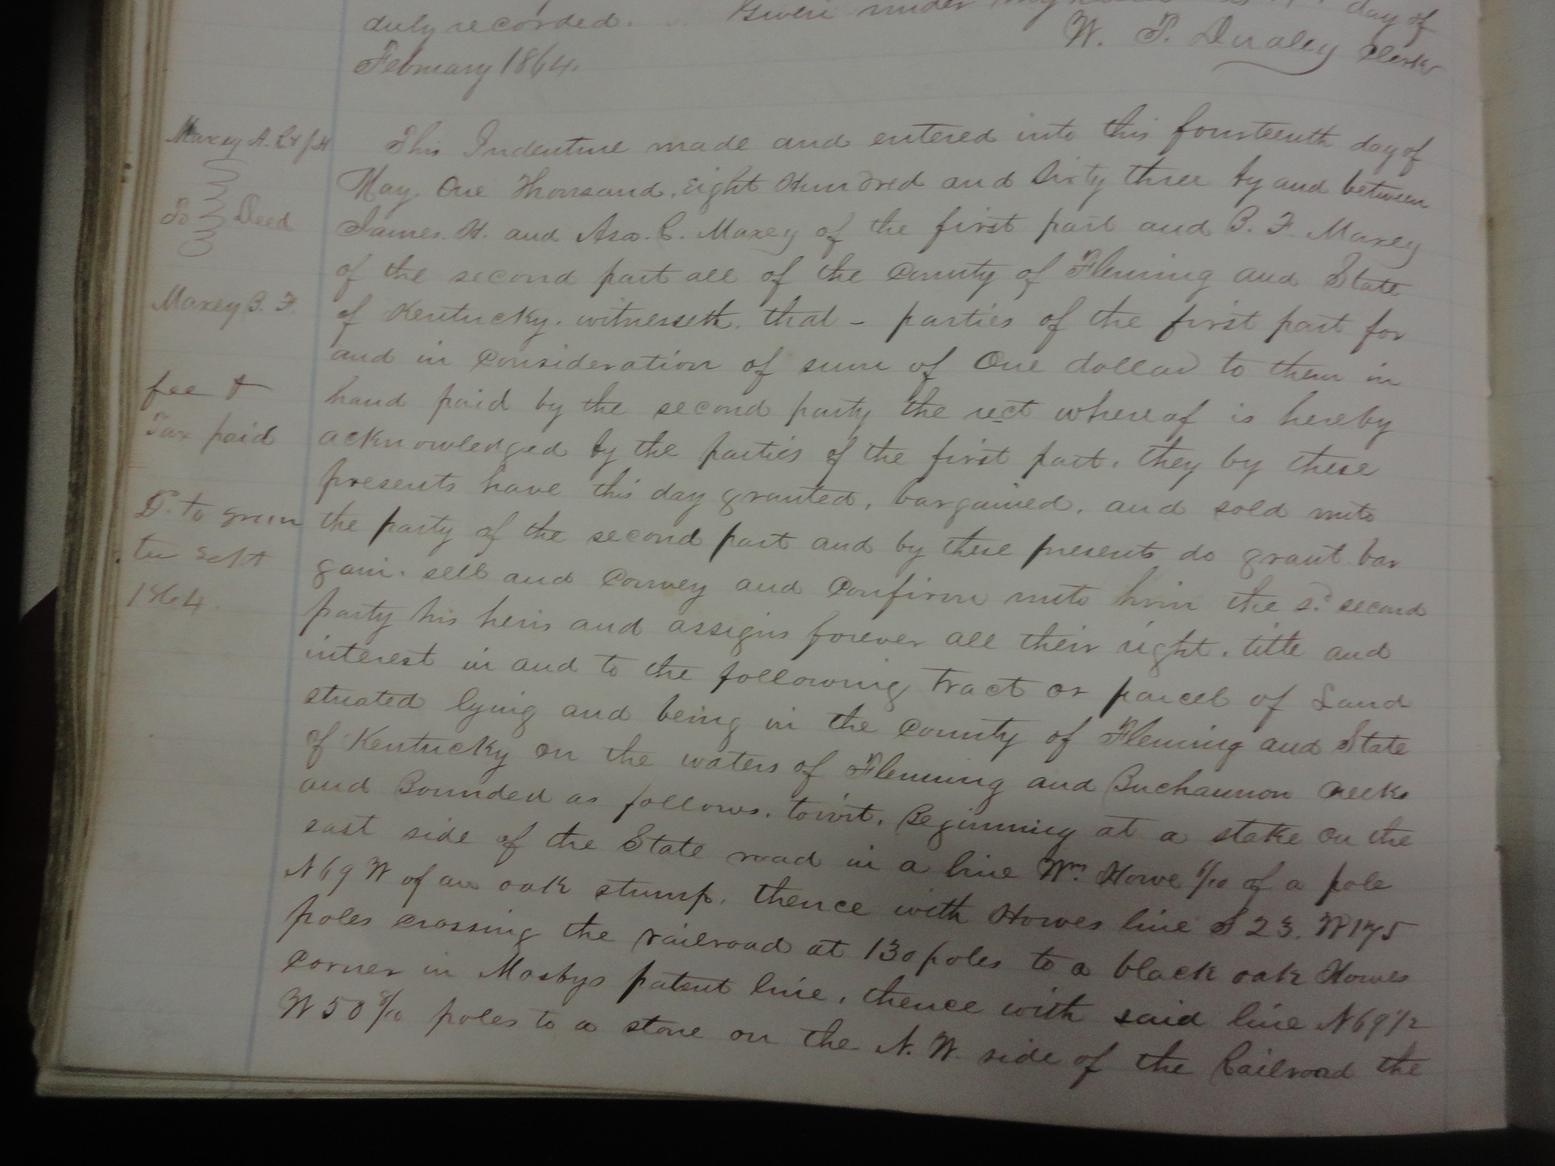 duly recorded. Given under my day of
February 1864. W. T. Dudley Clerk
Maxey A. C. & J. H.
To Deed
Maxey B. F.
fee &
Tax paid
D. to green
tu Sept
1864.
This Indenture made and entered into this fourteenth day of
May. One Thousand. Eight Hundred and Sixty three by and between
James. H. and Asa. C. Maxey of the first part and B. F. Maxey
of the second part all of the County of Fleming and State
of Kentucky. witnesseth. that - parties of the first part for
and in Consideration of sum of One dollar to them in
hand paid by the second party the rect whereof is hereby
acknowledged by the parties of the first part. they by these
presents have this day granted, bargained, and sold unto
the party of the second part and by these presents do grant. bar
gain. sell and Convey and Confirm unto him the sd second
party his heirs and assigns forever all their right. title and
interest in and to the following Tract or parcel of Land
stuated lying and being in the County of Fleming and State
of Kentucky on the waters of Flemming and Buchannon Creeks
and Bounded as follows. towit. Beginning at a stake on the
east side of the State road in a line Wm. Howe 6/10 of a pole
N69 W of an oak stump. thence with Howes line S 23. W175
poles crossing the railroad at 130 poles to a black oak Howes
Corner in Mosbys patent line, thence with said line N69 1/2
W 50 8/10 poles to a stone on the N. W. side of the Railroad the